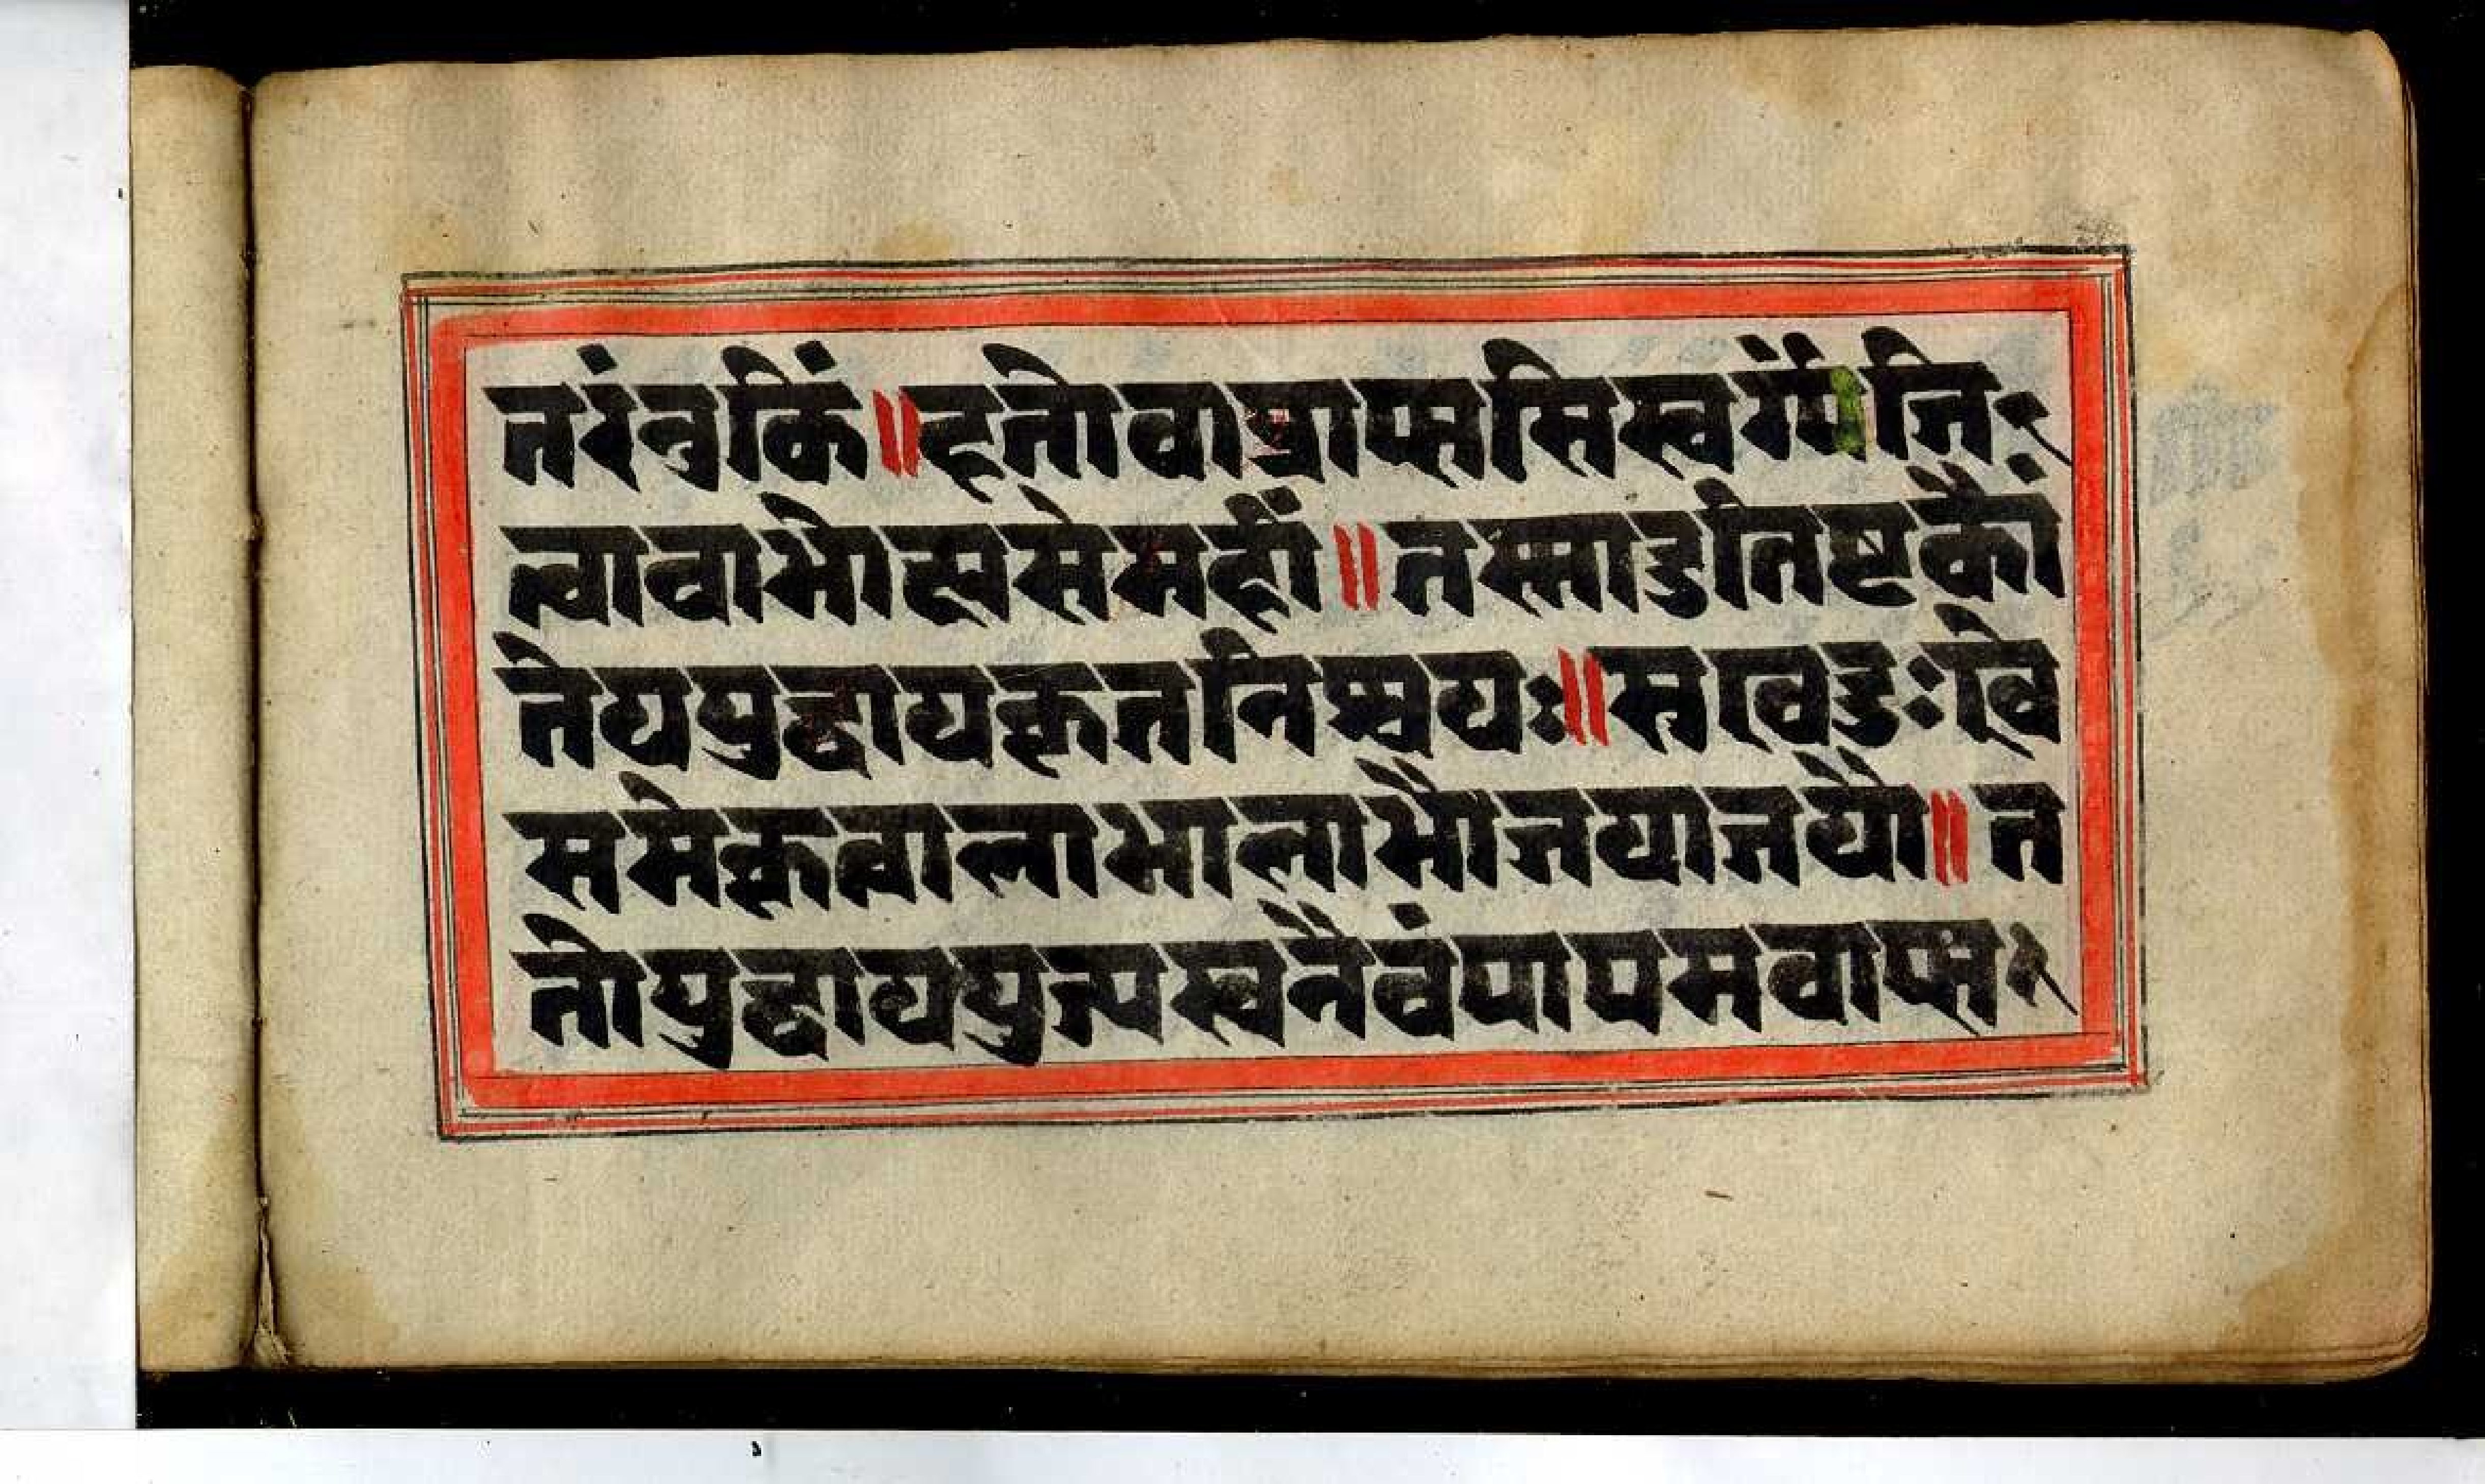 तरंनुकिं॥हतोवाप्राप्ससिस्वर्गंजि-
त्वावाभोक्ष्यसेमहीं॥तस्मादुतिष्टकौं
तेययुद्धायकृतनिश्चयः॥सुखदुःखे
समेकृत्वालाभालाभौजयाजयौ॥त
तोयुद्धाययुज्यस्वनैवंपापमवाप्स-